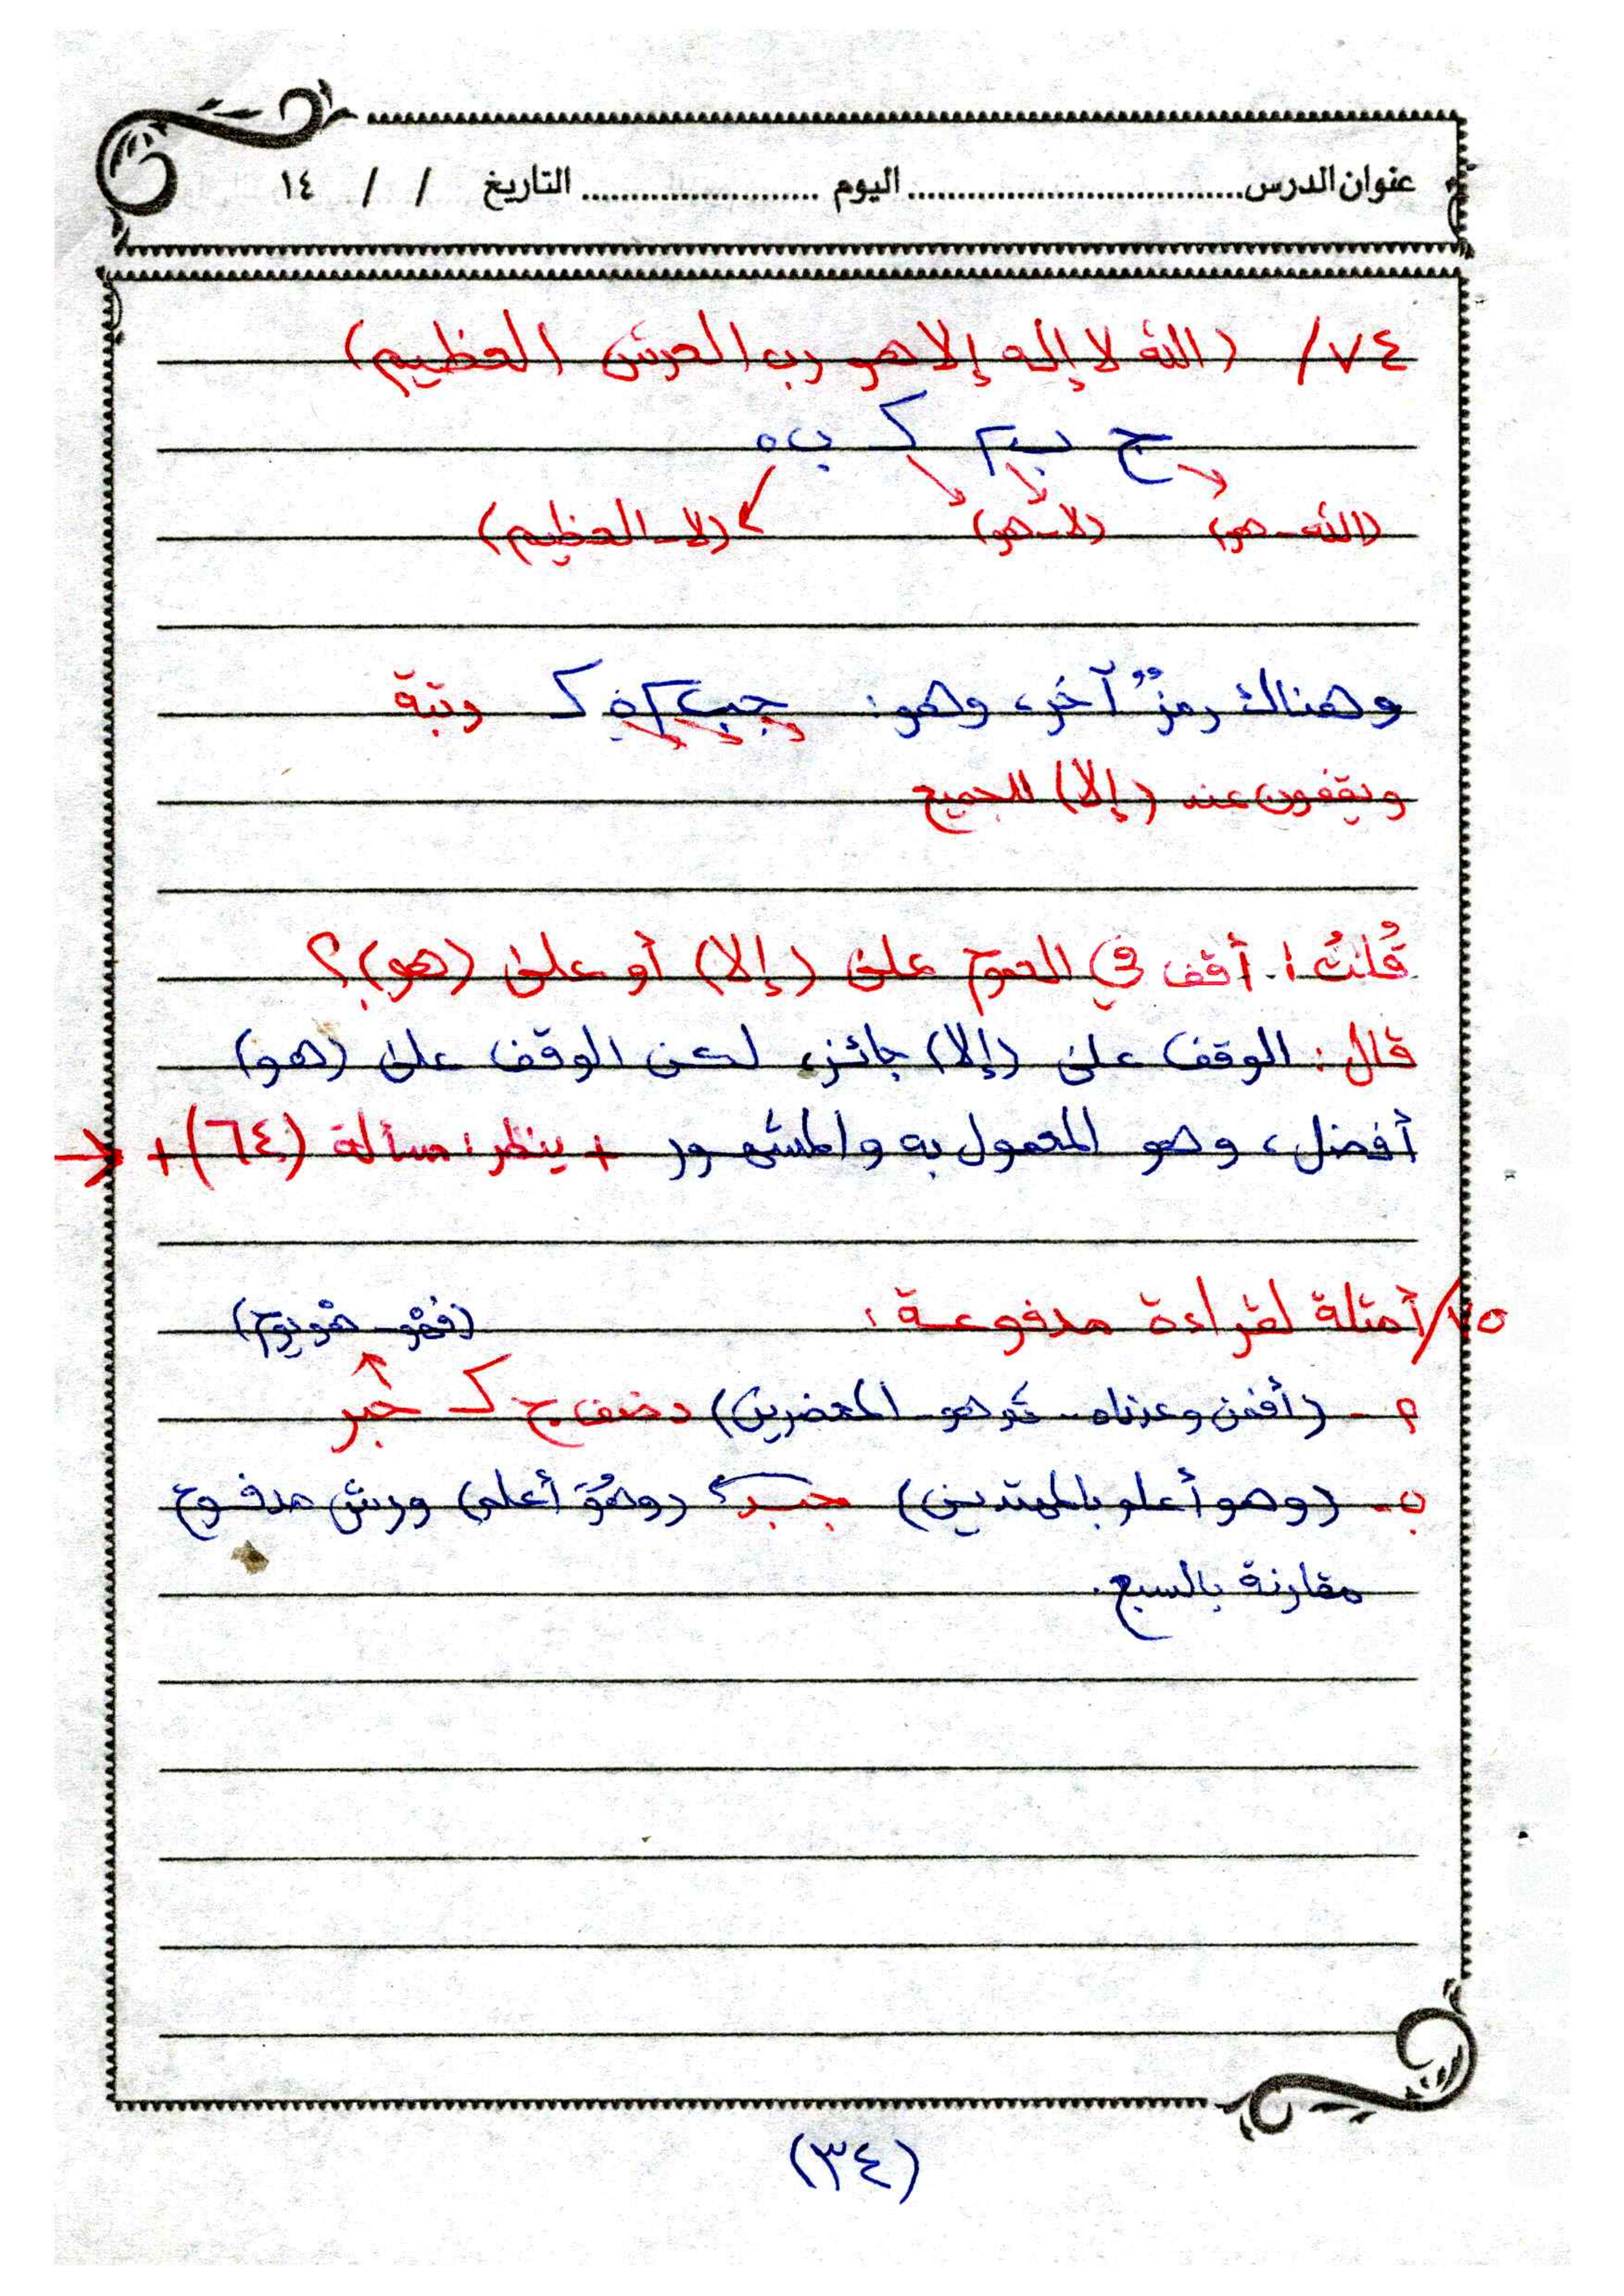 عنوان الدرس................................ اليوم ........................ التاريخ / / ١٤
٧٤/ (الله لا إله إلا هو رب العرش العظيم)
ج ب٢ ك ب٥
(الله - هو) (لا - هو) (لا - العظيم)
وهناك رمزٌ آخر، وهو: ك رتبة
ويقفون عند (إلا) للجميع
قُلتُ: أقف في العموم على (إلا) أو على (هو)؟
قال: الوقف على (إلا) جائز، لكن الوقف على (هو)
أفضل، وهو المعمول به والمشهور + ينظر: مسألة (٦٤) +
٧٥/ أمثلة لقراءة مدفوعة: (فهْو - هْو يوم)
٢ - (أفمن وعدناه - ثم هو - المحضرين) ك خبر
ب - (وهو أعلم بالمهتدين) (وهُوَ أعلم) ورش مدفوع
مقارنة بالسبع.
(٣٤)